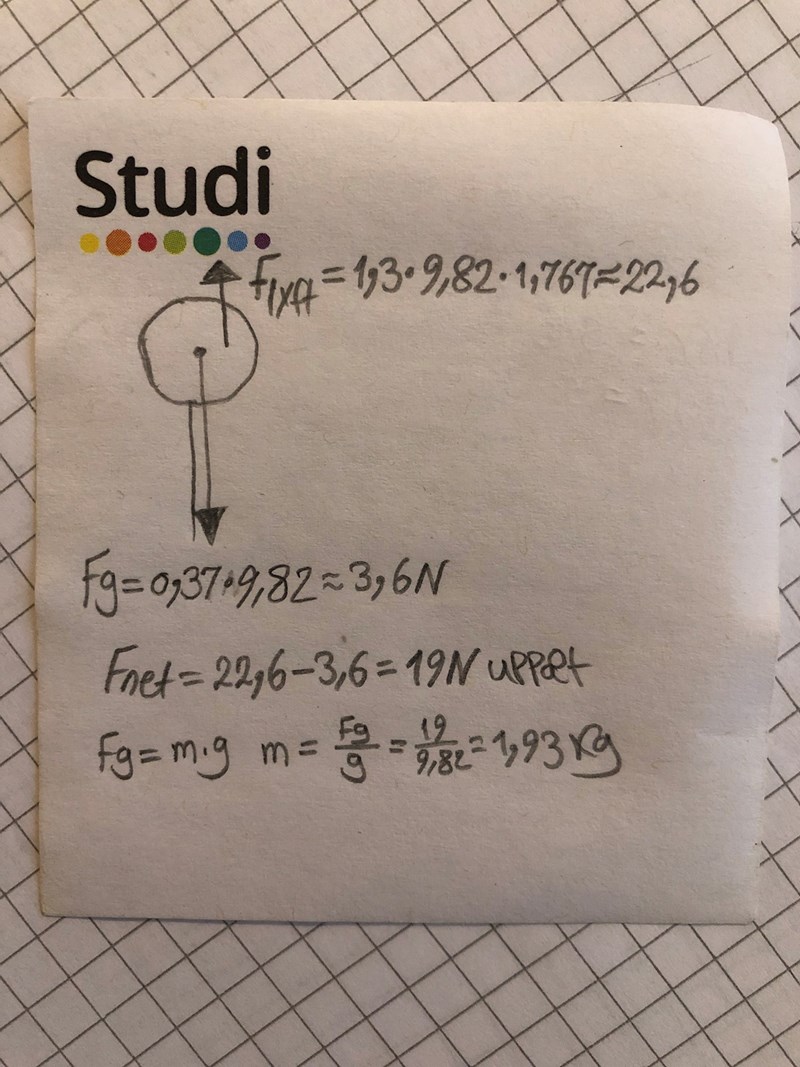 Studi
Flyft = 1,3·9,82·1,767≈22,6
Fg=0,37·9,82≈3,6N
Fnet = 22,6-3,6=19N uppåt
Fg=m·g m=Fg/g=19/9,82=1,93kg